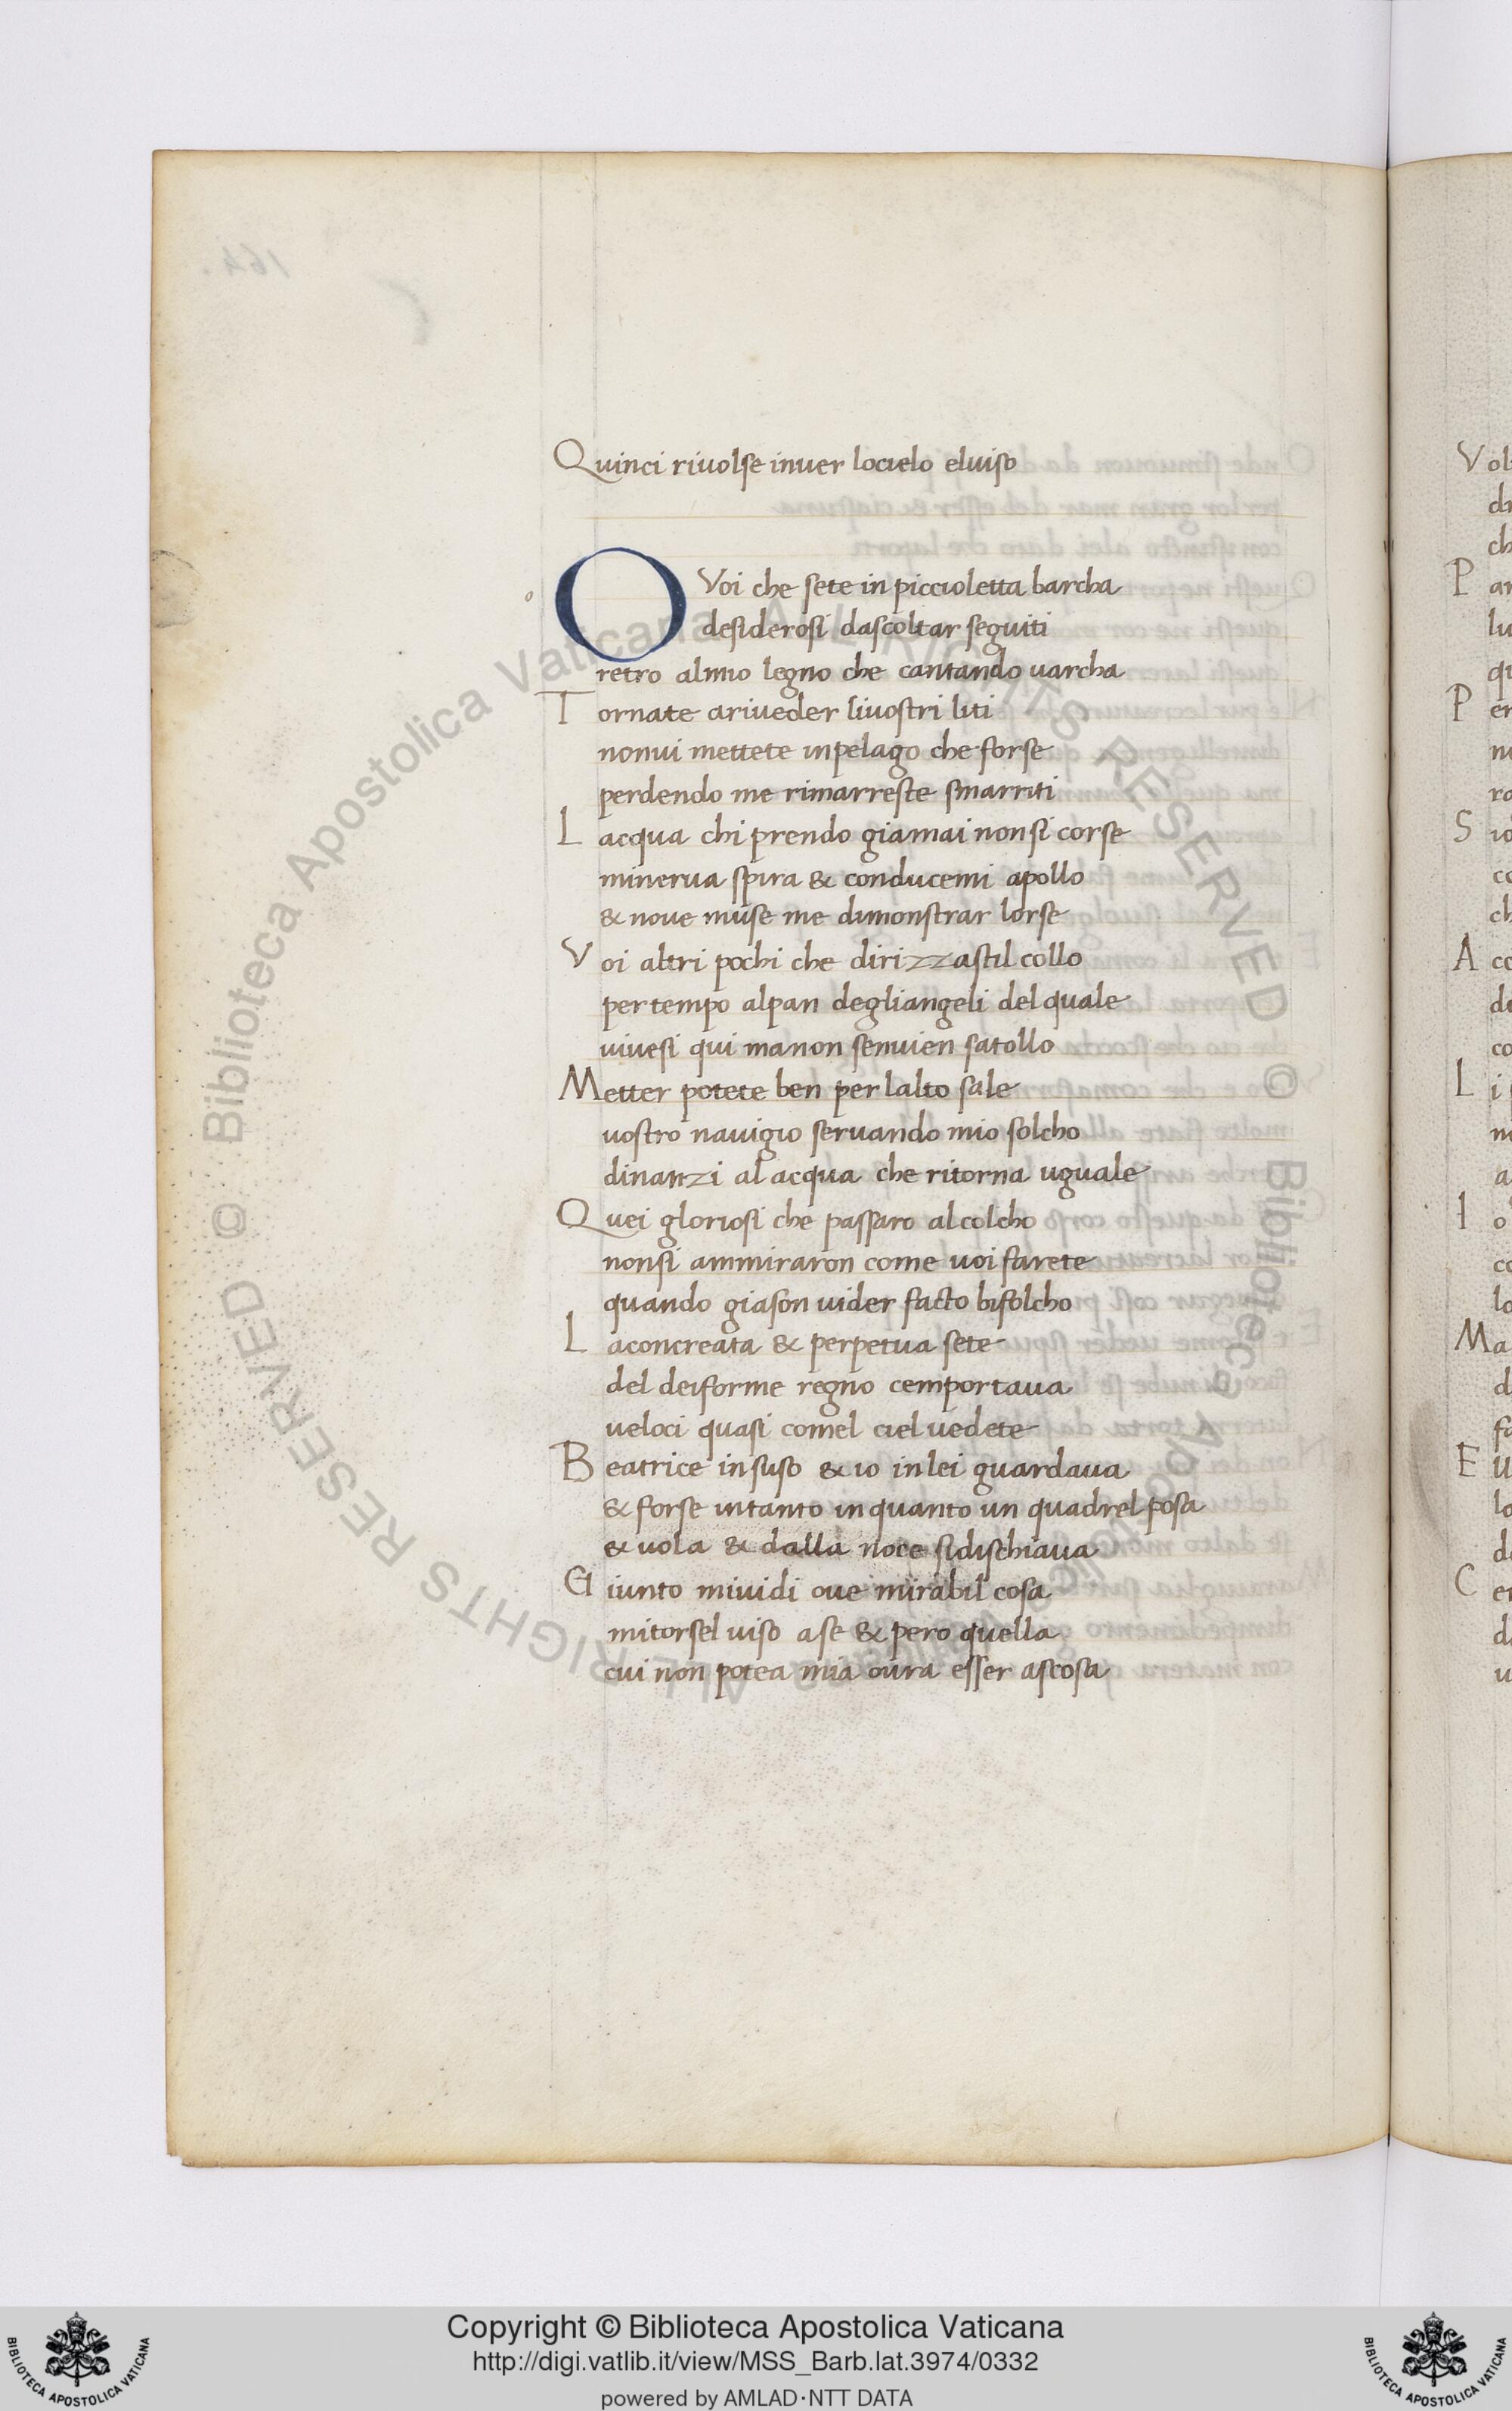 Quinci rivolse inver locielo elviso
O Voi che sete in piccioletta barcha
desiderosi dascoltar seguiti
retro almio legno che cantando uarcha
Tornate ariueder livostri liti
nonvi mettete inpelago che forse
perdendo me rimarreste smarriti
Lacqua chi prendo giamai nonsi corse
minerua spira & conducemi apollo
& nove muse me dimonstrar lorse
Voi altri pochi che dirizzastil collo
pertempo alpan degliangeli del quale
vivesi qui manon senvien satollo
Metter potete ben per lalto sale
vostro navigio servando mio solcho
dinanzi al acqua che ritorna uguale
Quei gloriosi che passaro alcolcho
nonsi ammiraron come voi farete
quando giason vider facto bifolcho
Laconcreata & perpetua sete
del deiforme regno cemportava
veloci quasi comel ciel vedete
Beatrice insuso & io inlei guardava
& forse intanto in quanto un quadrel posa
& vola & dalla noce sidischiava
Giunto mividi ove mirabil cosa
mitorsel viso ase & pero quella
cui non potea mia oura esser ascosa
o
164.
Vol
di
ch
P ar
lu
qu
P er
nu
ro
S io
co
ch
A cc
de
co
L i
ni
a
I o
co
lo
Ma
d
fa
E
lo
de
C er
d
u
© Biblioteca Apostolica Vaticana ALL RIGHTS RESERVED © Biblioteca Apostolica Vaticana ALL RIGHTS RESERVED
Copyright © Biblioteca Apostolica Vaticana
http://digi.vatlib.it/view/MSS_Barb.lat.3974/0332
powered by AMLAD·NTT DATA
BIBLIOTECA APOSTOLICA VATICANA
BIBLIOTECA APOSTOLICA VATICANA